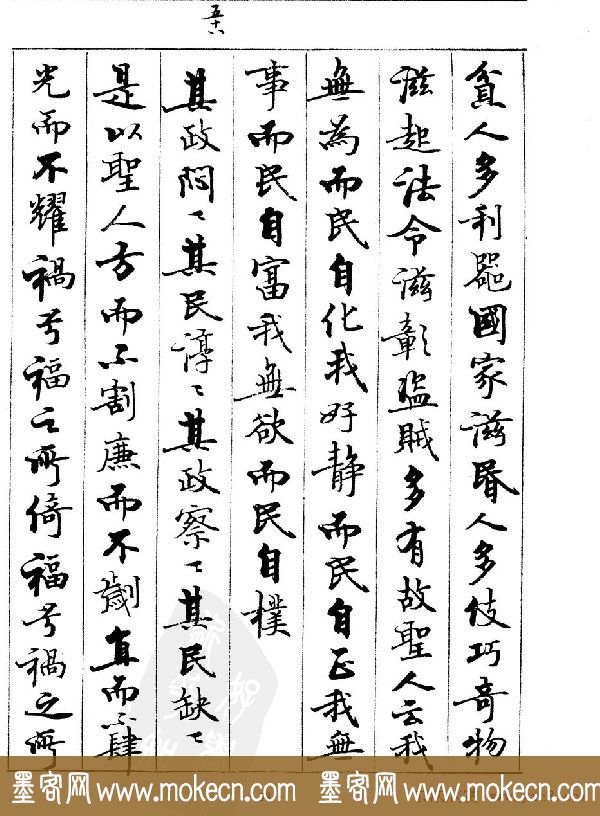 五十八
貧人多利器國家滋昬人多伎巧奇物
滋起法令滋彰盗賊多有故聖人云我
無為而民自化我好静而民自正我無
事而民自富我無欲而民自樸
其政悶〻其民淳〻其政察〻其民缺〻
是以聖人方而不割廉而不劌直而不肆
光而不耀禍兮福之所倚福兮禍之所
墨客网 www.mokecn.com 墨客网 www.mokecn.com